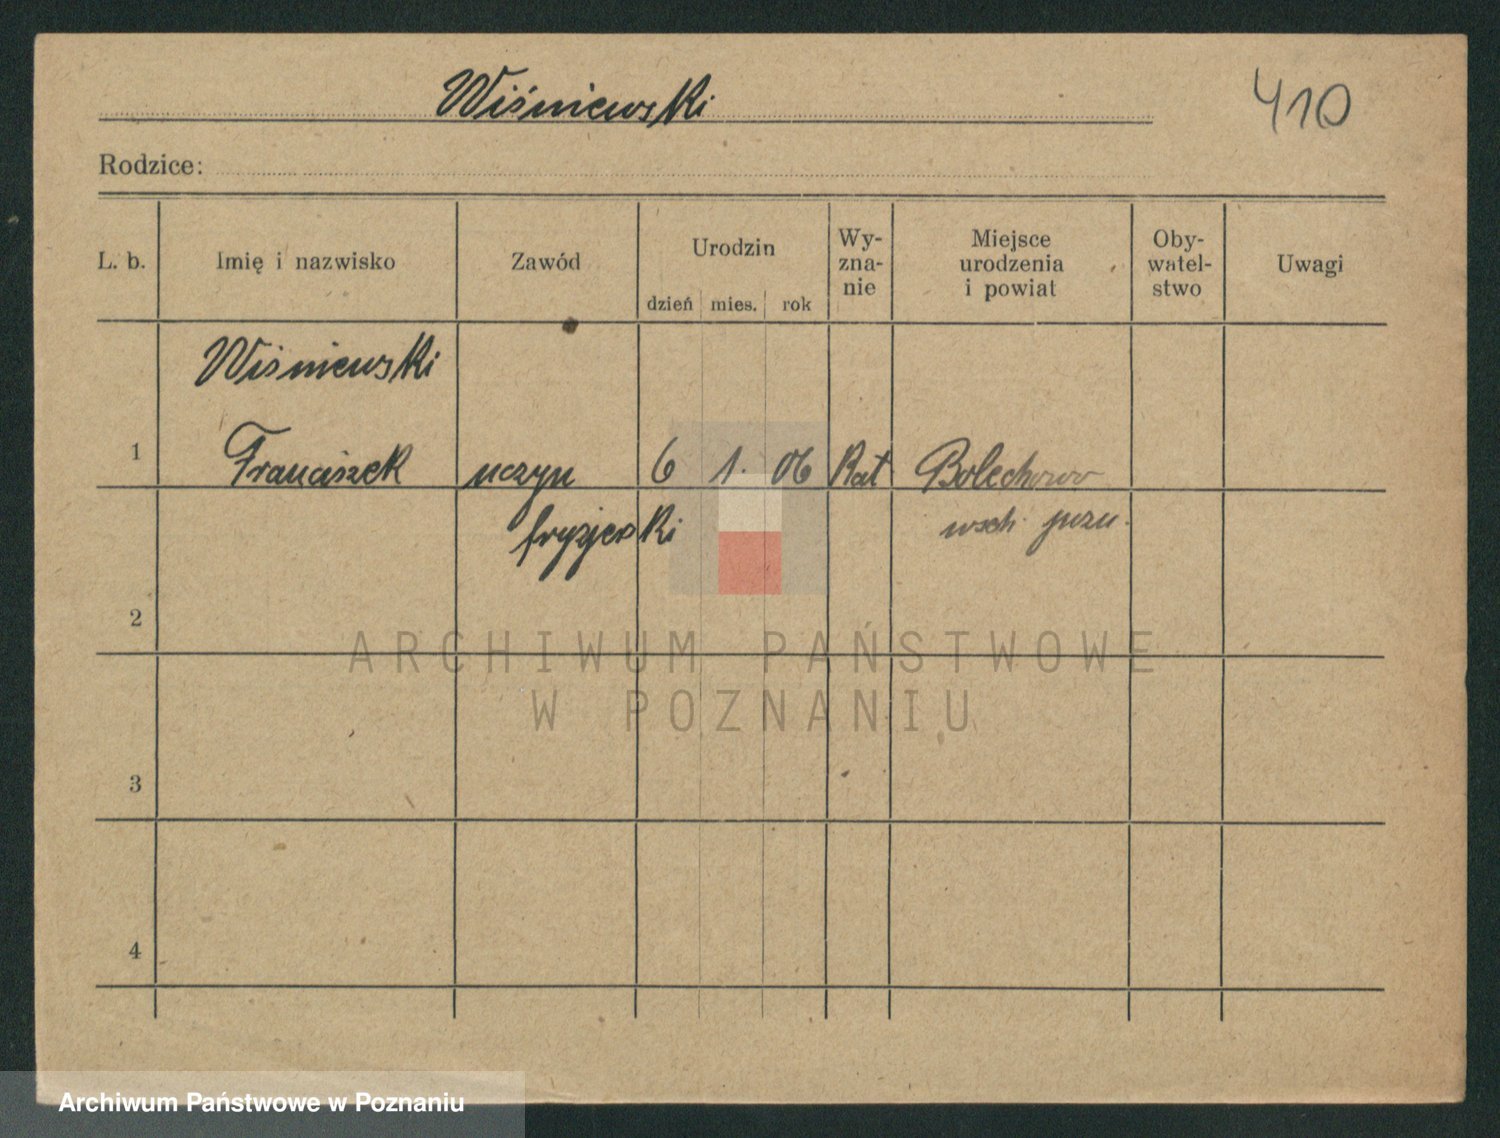 Wiśniewski
410
Rodzice:
L. b. Imię i nazwisko Zawód Urodzin dzień mies. rok Wy-zna-nie Miejsce urodzenia i powiat Oby-watel-stwo Uwagi
Wiśniewski
1 Franciszek uczyn 6 1. 06 Kat Bolechowo
fryzjerski wsch. pozn.
2
ARCHIWUM PAŃSTWOWE
W POZNANIU
3
4
Archiwum Państwowe w Poznaniu